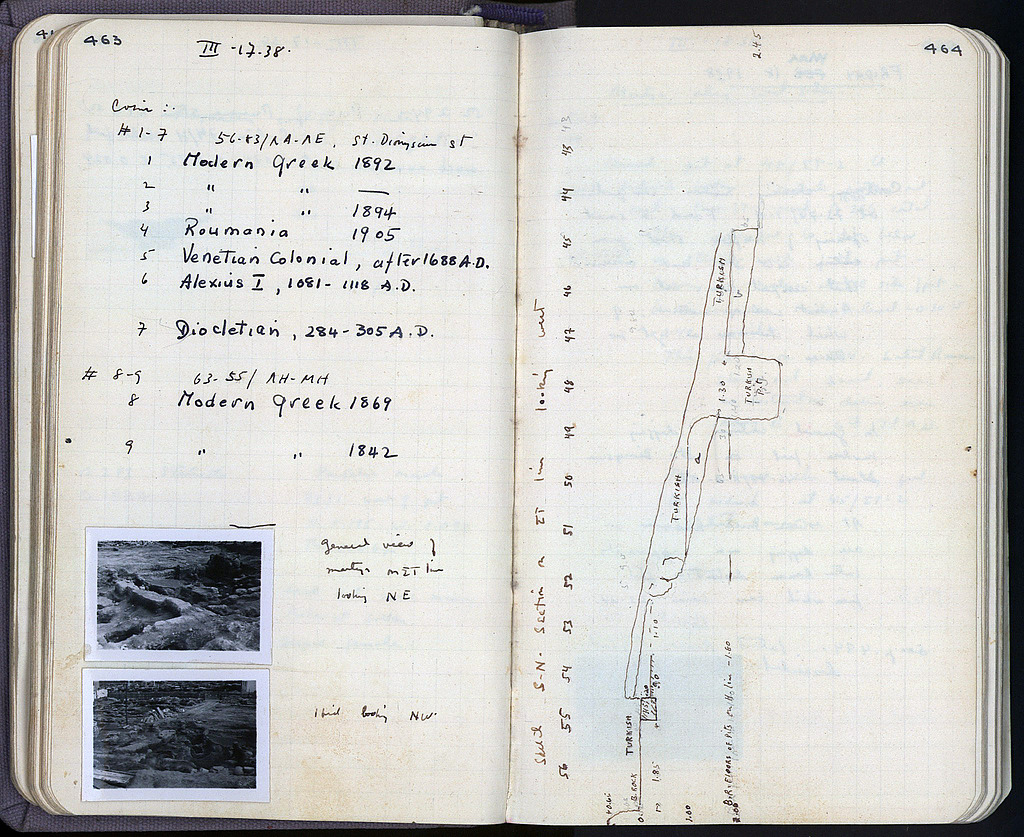 463
III-17-38.
Coins :-
# 1-7 56-83/ΛΑ-ΛΕ, St. Dionysius st
1 Modern Greek 1892
2 " " —
3 " " 1894
4 Roumania 1905
5 Venetian Colonial, after 1688 A.D.
6 Alexius I, 1081-1118 A.D.
7 Diocletian, 284-305 A.D.
# 8-9 63-55/ΛΗ-ΜΗ
8 Modern Greek 1869
9 " " 1842
General view of
looking NE
looking NW.
464
2.45
Sketch S-N. Section on ΞΓ line looking west
43 43 44 45 46 47 48 49 50 51 52 53 54 55 56
TURKISH
b
TURKISH
Pit
1.30
TURKISH
a
1.10
TURKISH
B.ROCK
1.85
1.00
2.00
B.R. FLOORS OF PITS on line -1.80